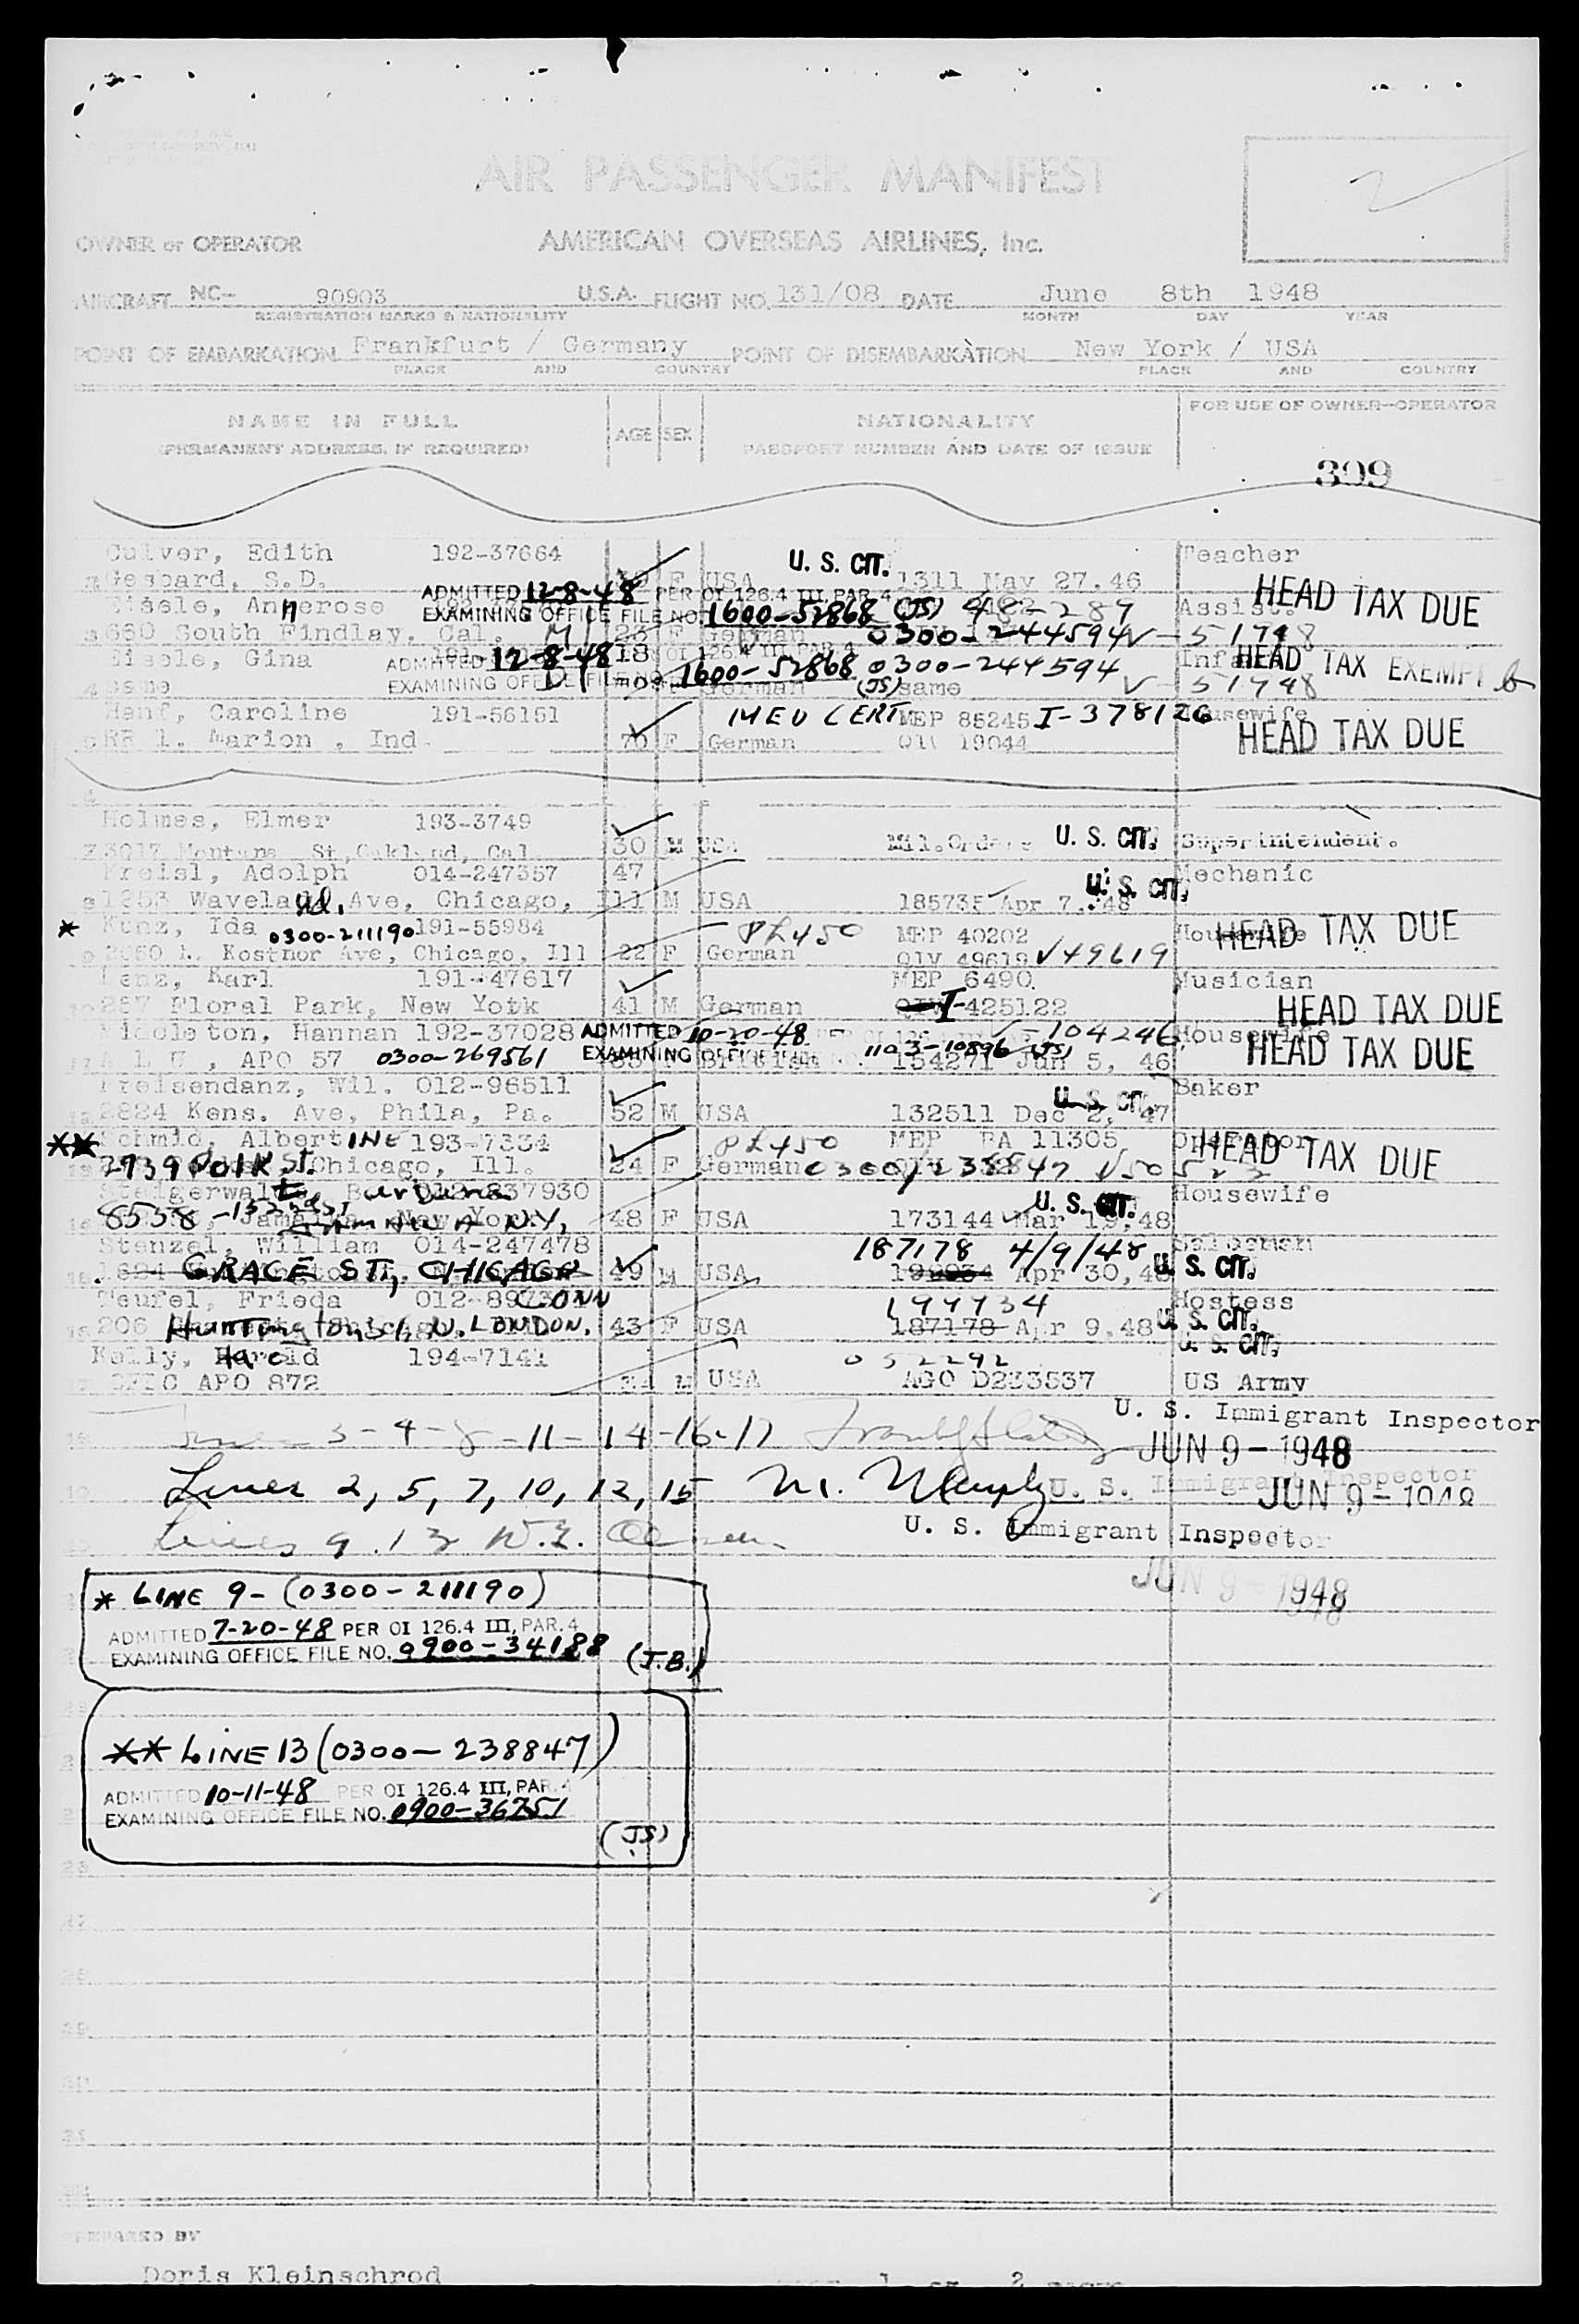 AIR PASSENGER MANIFEST
2
OWNER or OPERATOR AMERICAN OVERSEAS AIRLINES, Inc.
AIRCRAFT NC- 90903 U.S.A. FLIGHT NO. 131/08 DATE June 8th 1948
REGISTRATION MARKS & NATIONALITY MONTH DAY YEAR
POINT OF EMBARKATION Frankfurt / Germany POINT OF DISEMBARKATION New York / USA
PLACE AND COUNTRY PLACE AND COUNTRY
NAME IN FULL AGE SEX NATIONALITY FOR USE OF OWNER-OPERATOR
(PERMANENT ADDRESS, IF REQUIRED) PASSPORT NUMBER AND DATE OF ISSUE
399
Culver, Edith 192-37664 U. S. CIT. Teacher
2 Gesbard, S.D. F USA 1311 May 27.46 HEAD TAX DUE
ADMITTED 12-8-48 PER OI 126.4 III, PAR. 4
Eisele, Annerose 48-289 Assist.
EXAMINING OFFICE FILE NO. 1600-52868 (JS)
3 660 South Findlay, Cal. F German 0300-244594 V-51748
Eisele, Gina ADMITTED 12-8-48 OI 126.4 III, PAR. 4 0300-244594 HEAD TAX EXEMPT
4 same EXAMINING OFFICE FILE NO. 1600-52868 (JS) German same V 51748
Henf, Caroline 191-56151 MED CERT MEP 85245 I-378126 Housewife
5 RR 1. Marion, Ind. 70 F German QIV 19044 HEAD TAX DUE
Holmes, Elmer 193-3749
7 3017 Montana St, Oakland, Cal 30 M USA Mil.Orders U. S. CIT. Superintendent.
Kreisl, Adolph 014-247357 47 Mechanic
8 1253 Waveland Ave, Chicago, Ill M USA 185735 Apr 7. 48 U. S. CIT.
* Kunz, Ida 0300-211190 191-55984 PL450 MEP 40202 Housewife HEAD TAX DUE
9 2650 N. Kostnor Ave, Chicago, Ill 22 F German QIV 49619 V49619
Lenz, Karl 191-47617 MEP 6490. Musician
10 267 Floral Park, New York 41 M German I-425122 HEAD TAX DUE
Middleton, Hannan 192-37028 ADMITTED 10-20-48 104246 Housewife
11 APO 57 0300-269561 EXAMINING OFFICE FILE NO. 1103-10896 (JS) F British 154271 Jun 5, 46 HEAD TAX DUE
Preisendanz, Wil. 012-96511 Baker
12 2824 Kens. Ave, Phila, Pa. 52 M USA 132511 Dec 2, 47 U. S. CIT.
** Schmid, Albertine 193-7334 PL450 MEP PA 11305 Operator HEAD TAX DUE
13 2939 POLK ST. Chicago, Ill. 24 F German 0300/238847 V50523
Steigerwalt, Barbara 012-837930 Housewife
14 8538-152nd ST Jamaica, New York, N.Y. 48 F USA 173144 Mar 19, 48 U. S. CIT.
Stenzel, William 014-247478 187178 4/9/48 Salesman
15. GRACE ST, CHICAGO 49 M USA Apr 30, 48 U. S. CIT.
Teufel, Frieda CONN 199934 Hostess
16. 206 Huntington St. N. LONDON. 43 F USA 187178 Apr 9.48 U. S. CIT.
U. S. CIT.
Kelly, Harold 194-7141 052292
17 APO 872 M USA AGO D233537 US Army
Lines 3-4-8-11-14-16-17 U. S. Immigrant Inspector
JUN 9-1948
Lines 2, 5, 7, 10, 12, 15 M. Murphy U. S. Immigrant Inspector
JUN 9-1948
Lines 9. 13 U. S. Immigrant Inspector
JUN 9-1948
* LINE 9- (0300-211190)
ADMITTED 7-20-48 PER OI 126.4 III, PAR. 4
EXAMINING OFFICE FILE NO. 0900-34188 (J.B.)
** LINE 13 (0300-238847)
ADMITTED 10-11-48 PER OI 126.4 III, PAR. 4
EXAMINING OFFICE FILE NO. 0900-36751
(JS)
PREPARED BY
Doris Kleinschrod